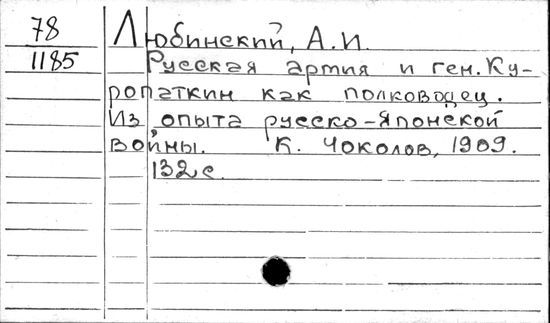 78
1185
Любинский, А.И.
Русская армия и ген. Ку-
ропаткин как полководец.
Из опыта русско-Японской
войны. К. Чоколов, 1909.
132 с.